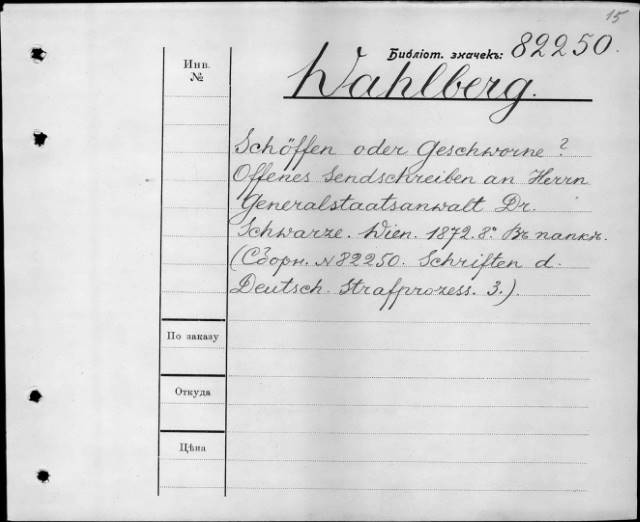 15
Библіот. значекъ: 82250.
Инв.
№
Wahlberg.
Schöffen oder Geschworne?
Offenes Sendschreiben an Herrn
Generalstaatsanwalt Dr.
Schwarze. Wien. 1872. 8°. Въ папкъ.
(Сборн. №82250. Schriften d.
Deutsch. Strafprozess. 3.).
По заказу
Откуда
Цѣна